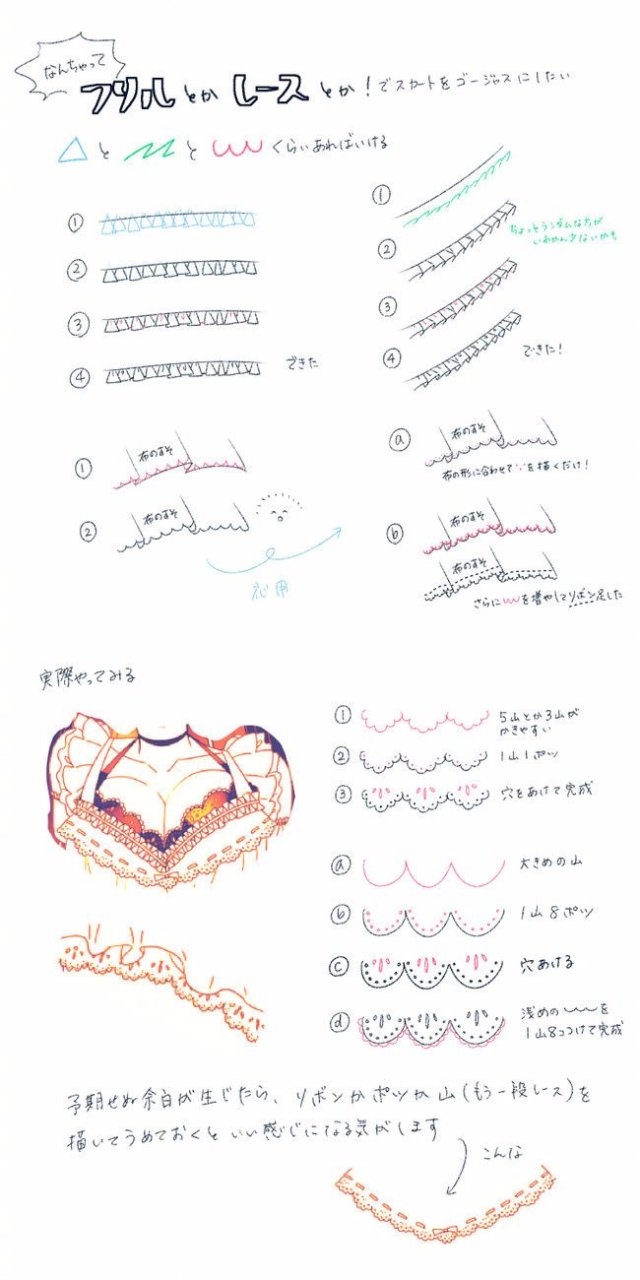 なんちゃって
フリルとか レースとか！でスカートをゴージャスにしたい
くらいあればいける
①
②
③
④ できた
①
ちょっとランダムな方が
いわかんないかも
②
③
④ できた！
①
布のすそ
②
布のすそ
応用
ⓐ
布のすそ
布の形に合わせて を描くだけ！
ⓑ
布のすそ
布のすそ
さらに を増やしてリボン足した
実際やってみる
① 5山とか3山が
かきやすい
② 1山1ポツ
③ 穴をあけて完成
ⓐ 大きめの山
ⓑ 1山8ポツ
ⓒ 穴あける
ⓓ 浅めの を
1山8コつけて完成
予期せぬ余白が生じたら、リボンかポツか山(もう一段レース)を
描いてうめておくといい感じになる気がします
こんな